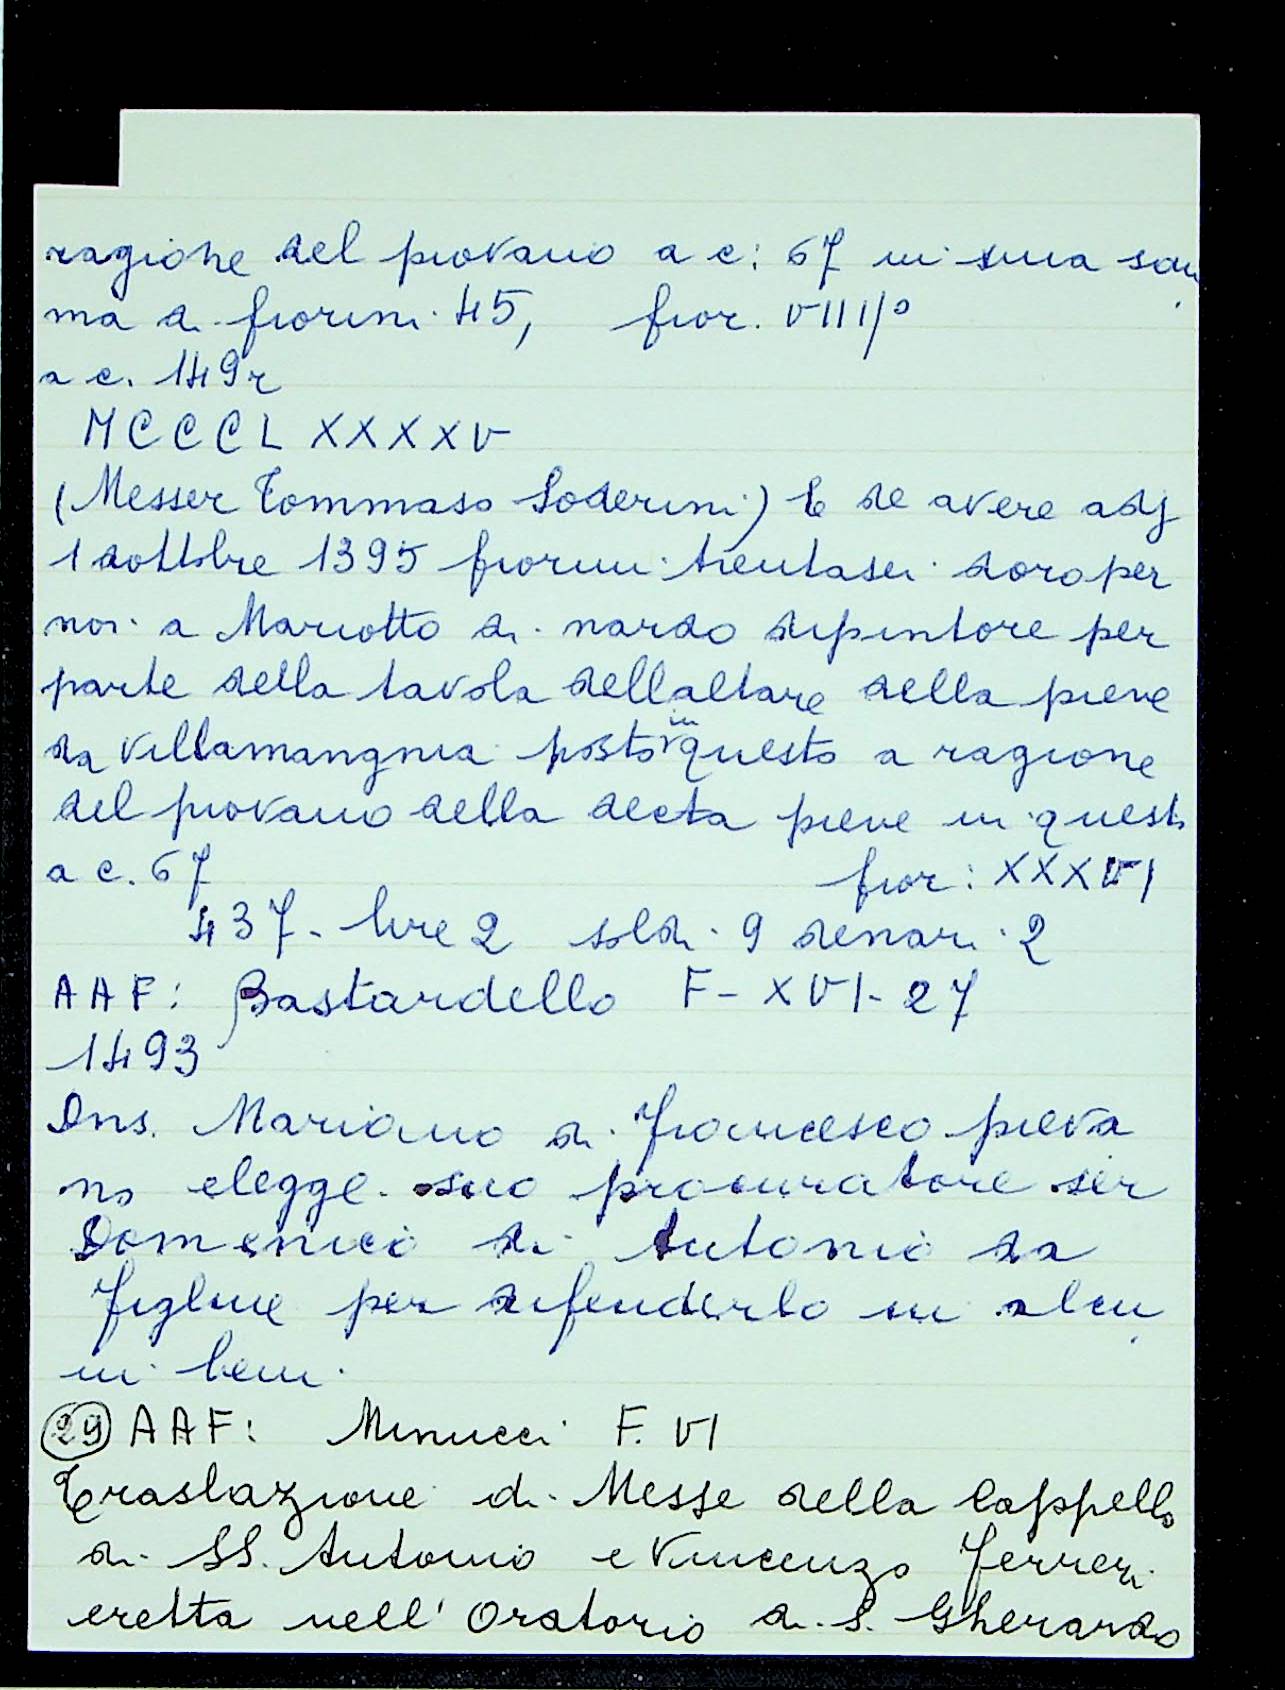 ragione del piovano a c: 67 in una som
ma di fiorini 45, fior. VIIII/o
a c. 149r
MCCCLXXXXV
(Messer Tommaso Soderini) E de avere adj
1 dottobre 1395 fiorini trentasei doro per
noi a Mariotto di nardo dipintore per
parte della tavola dellaltare della pieve
da Villamangnia posto in questo a ragione
del piovano della decta pieve in questo
a c. 67 fior: XXXVI
437 - lire 2 soldi 9 denari 2
AAF: Bastardello F - XVI - 27
1493
Dns. Mariano di Francesco pieva
no elegge suo procuratore ser
Domenico di Antonio da
Figline per difenderlo in alcu
ni beni.
(29) AAF: Minucci F. VI
Traslazione di Messe della Cappella
di SS. Antonio e Vincenzo Ferreri
eretta nell' Oratorio di S. Gherardo